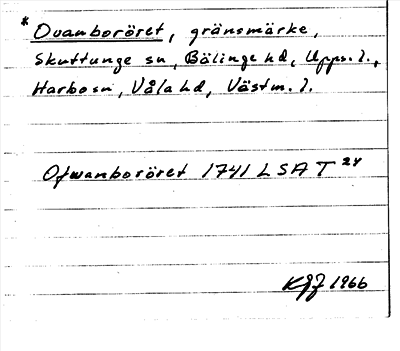 * Ovanboröret, gränsmärke,
Skuttunge sn, Bälinge hd, Upps. l.,
Harbo sn, Våla hd, Västm. l.
Ofwanboröret 1741 LSA T 24
KGJ 1966